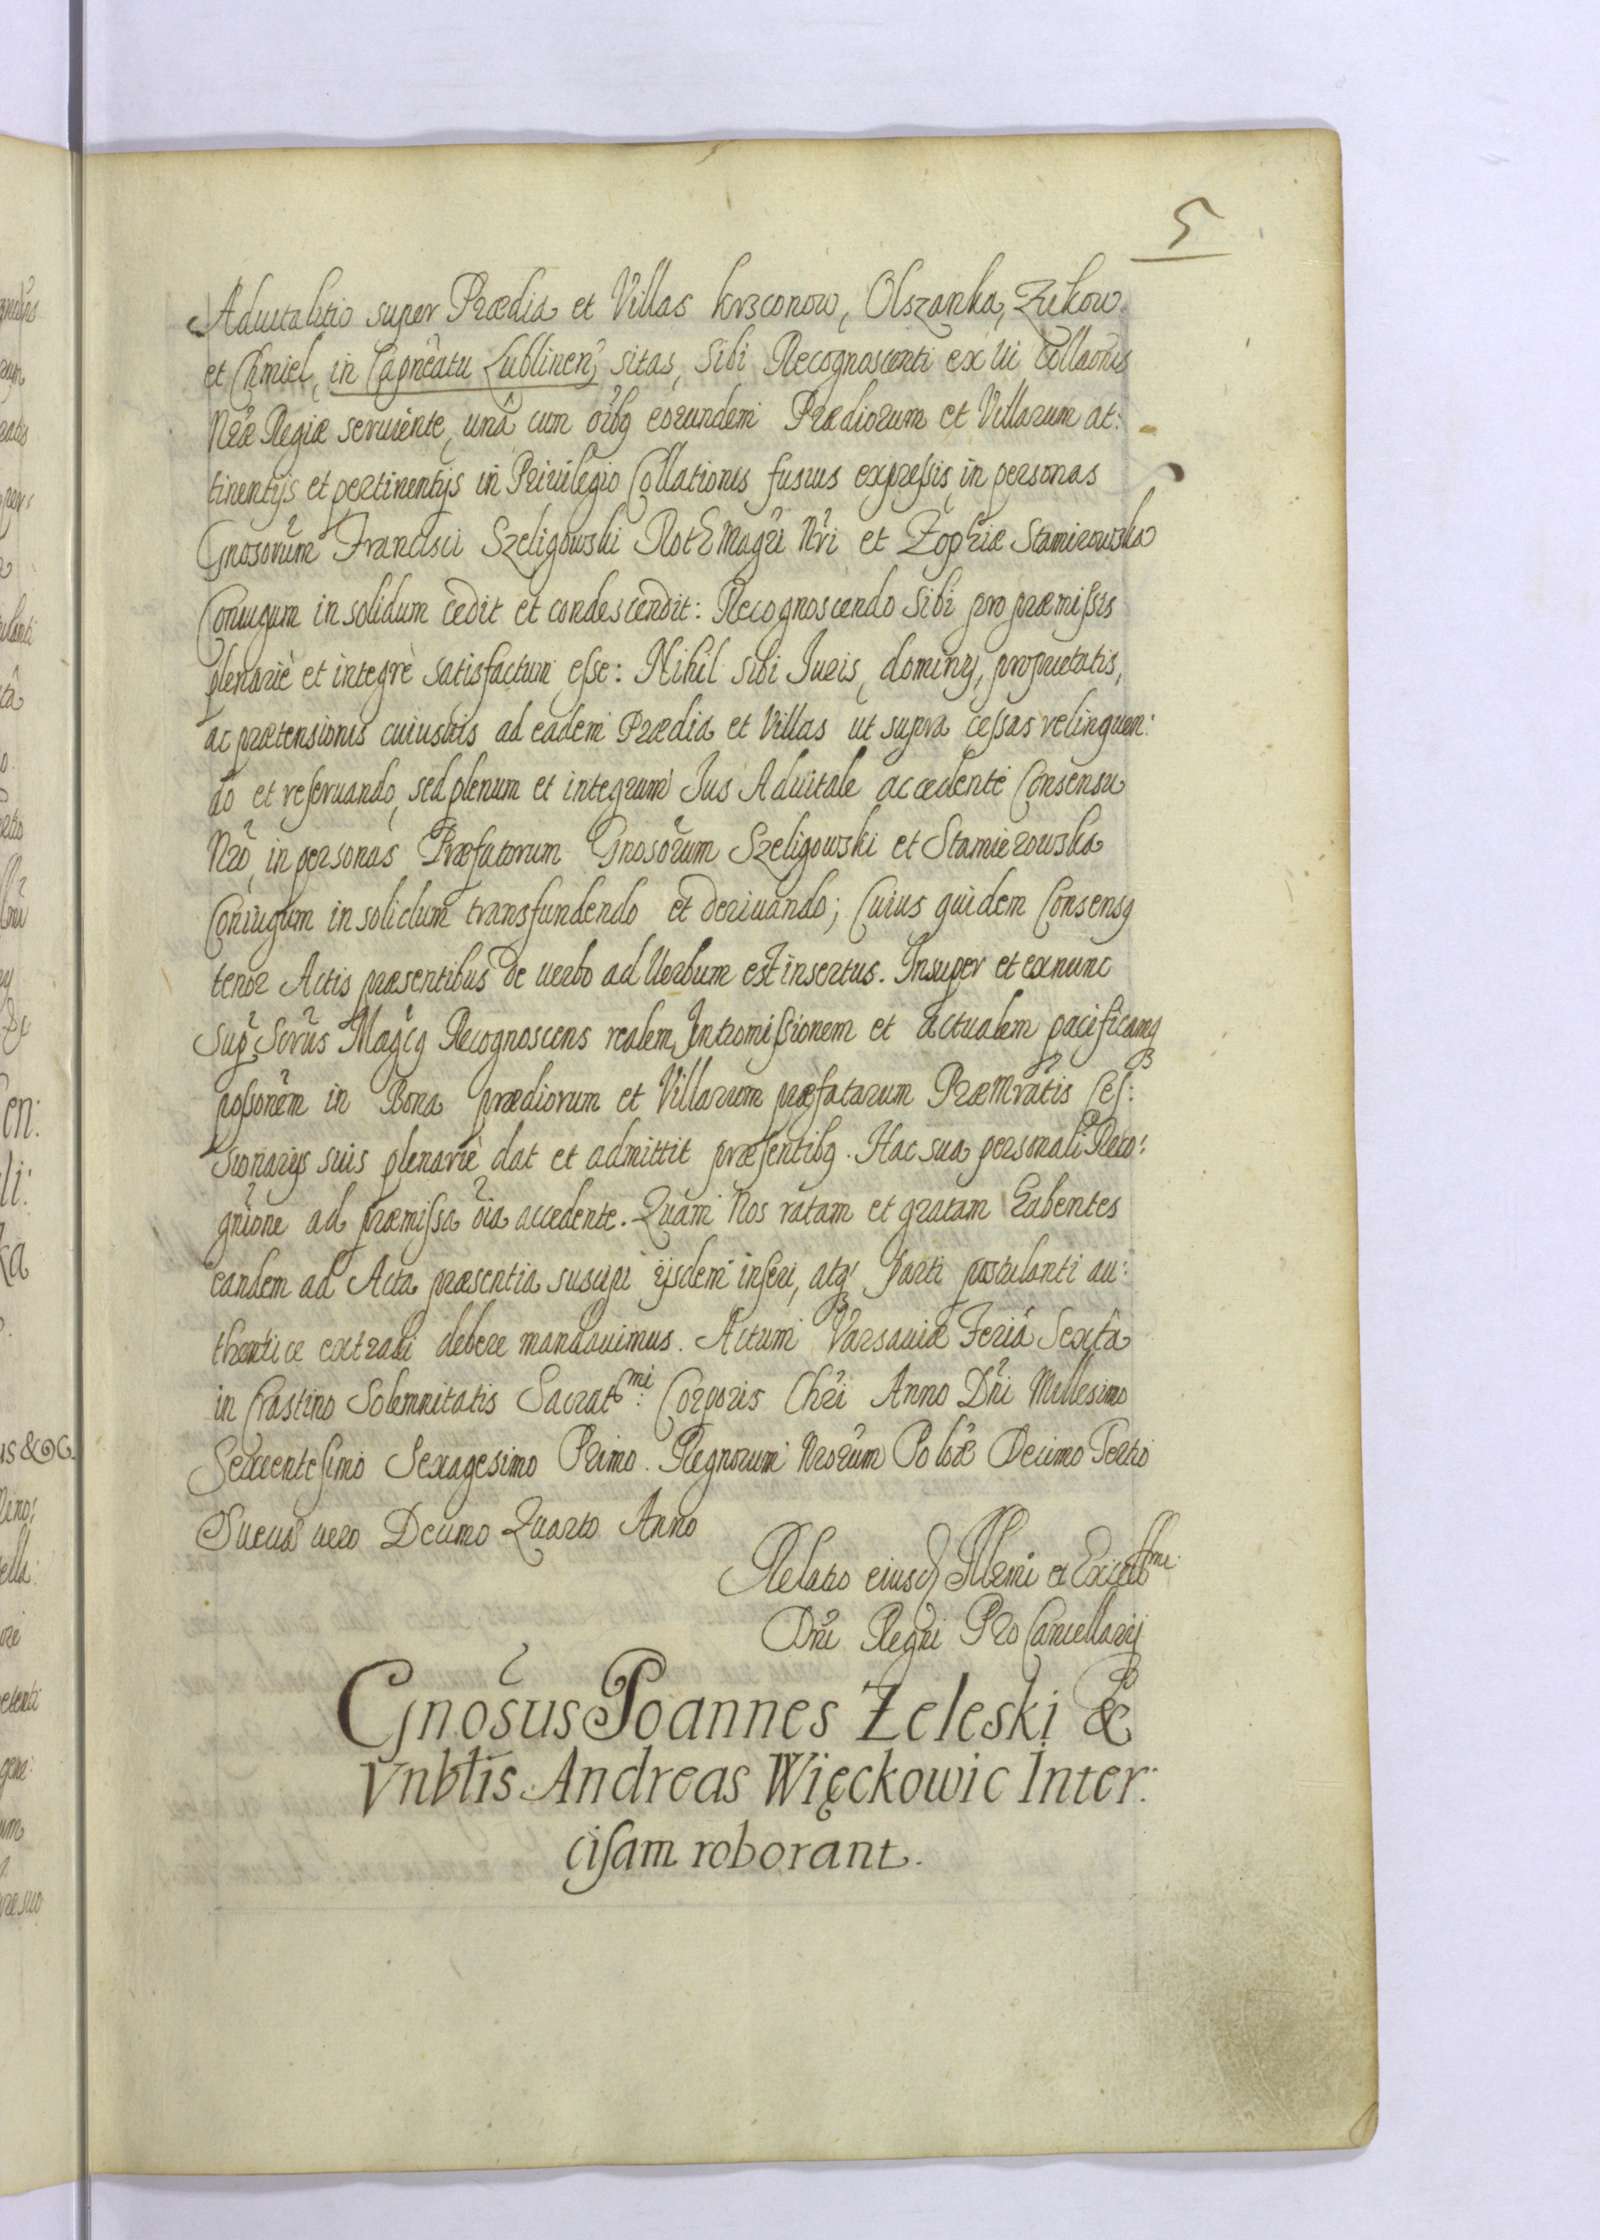 5
Aduitalitio super Prædia et Villas krsconow, Olszanka, Zukow
et Chmiel, in Capneatu Lublinen, sitas, Sibi Recognoscenti ex ui Collaonis
Nræ Regiæ seruiente, unâ cum oibq eorundem Prædiorum et Villarum at:
tinentijs et pertinentijs in Priuilegio Collationis fusius expressis, in personas
Gnosorum Francisci Szeligowski RothMagri Nri et Zophiæ Stamirowska
Coniugum in solidum cedit et condescendit: Recognoscendo Sibi pro præmissis
plenariè et integrè satisfactum esse: Nihil sibi Iuris, dominij, proprietatis,
ac prætensionis cuiusuis ad eadem Prædia et Villas ut supra cessas relinquen:
do et reseruando, sed plenum et integrum Ius Aduitale accedente Consensu
Nro, in personas Præfatorum Gnosorum Szeligowski et Stamierowska
Coniugum in solidum transfundendo et deriuando; Cuius quidem Consensq
tenor Actis præsentibus de uerbo ad Uerbum est insertus. Insuper et exnunc
Sup Scrus Magcq Recognoscens realem Intromissionem et actualem pacificamq
possonem in Bona prædiorum et Villarum præfatarum PræMratis Ces:
sionarijs suis plenariè dat et admittit præsentibq. Hac sua personali Reco:
gnione ad præmissa oia accedente. Quam Nos ratam et gratam habentes
eandem ad Acta præsentia suscipi ijsdem inseri, atq Parti postulanti au:
thentice extradi debere mandauimus. Actum Varsauiæ Feriâ Sexta
in Crastino Solemnitatis Sacratmi: Corporis Chri Anno Dni Millesimo
Sexcentesimo Sexagesimo Primo. Regnorum Nrorum Poloæ Decimo Tertio
Sueciæ uero Decimo Quarto Anno
Relatio eiusd Illrmi et Excellmi
Dni Regni ProCancellarij
Gnosus Joannes Zeleski &
Vnbtis Andreas Więckowic Inter:
cisam roborant.